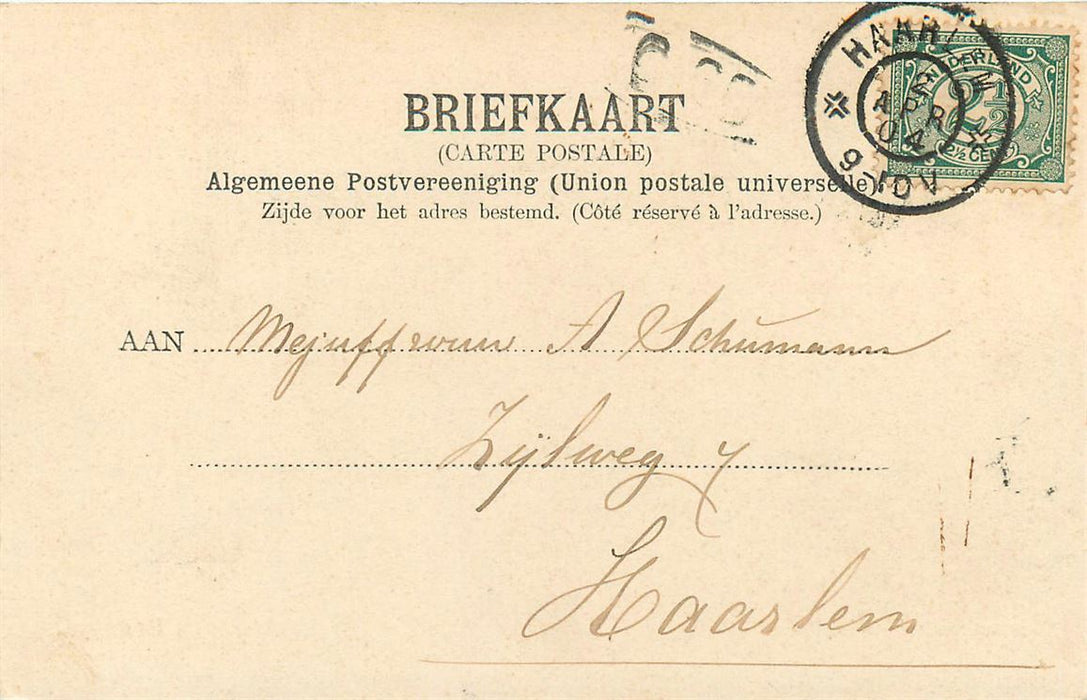 BRIEFKAART
(CARTE POSTALE)
Algemeene Postvereeniging (Union postale universelle)
Zijde voor het adres bestemd. (Côté réservé à l'adresse.)
HAARLEM
2
APR
04
NEDERLAND
2½
2½ CENT
AAN Mejuffrouw A Schümann
Zijlweg 7
Haarlem